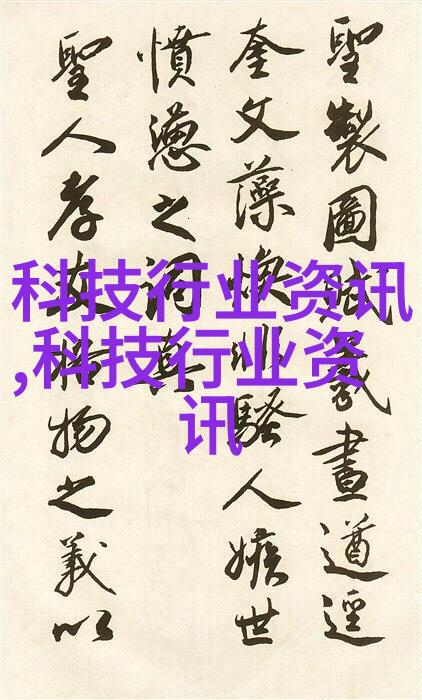 聖製圖羲畫遒逕
奎文藻煥非騷人嫉世
憤懣之詞真
聖人孝友格物之義以
科技行业资讯
,科技行业资
讯